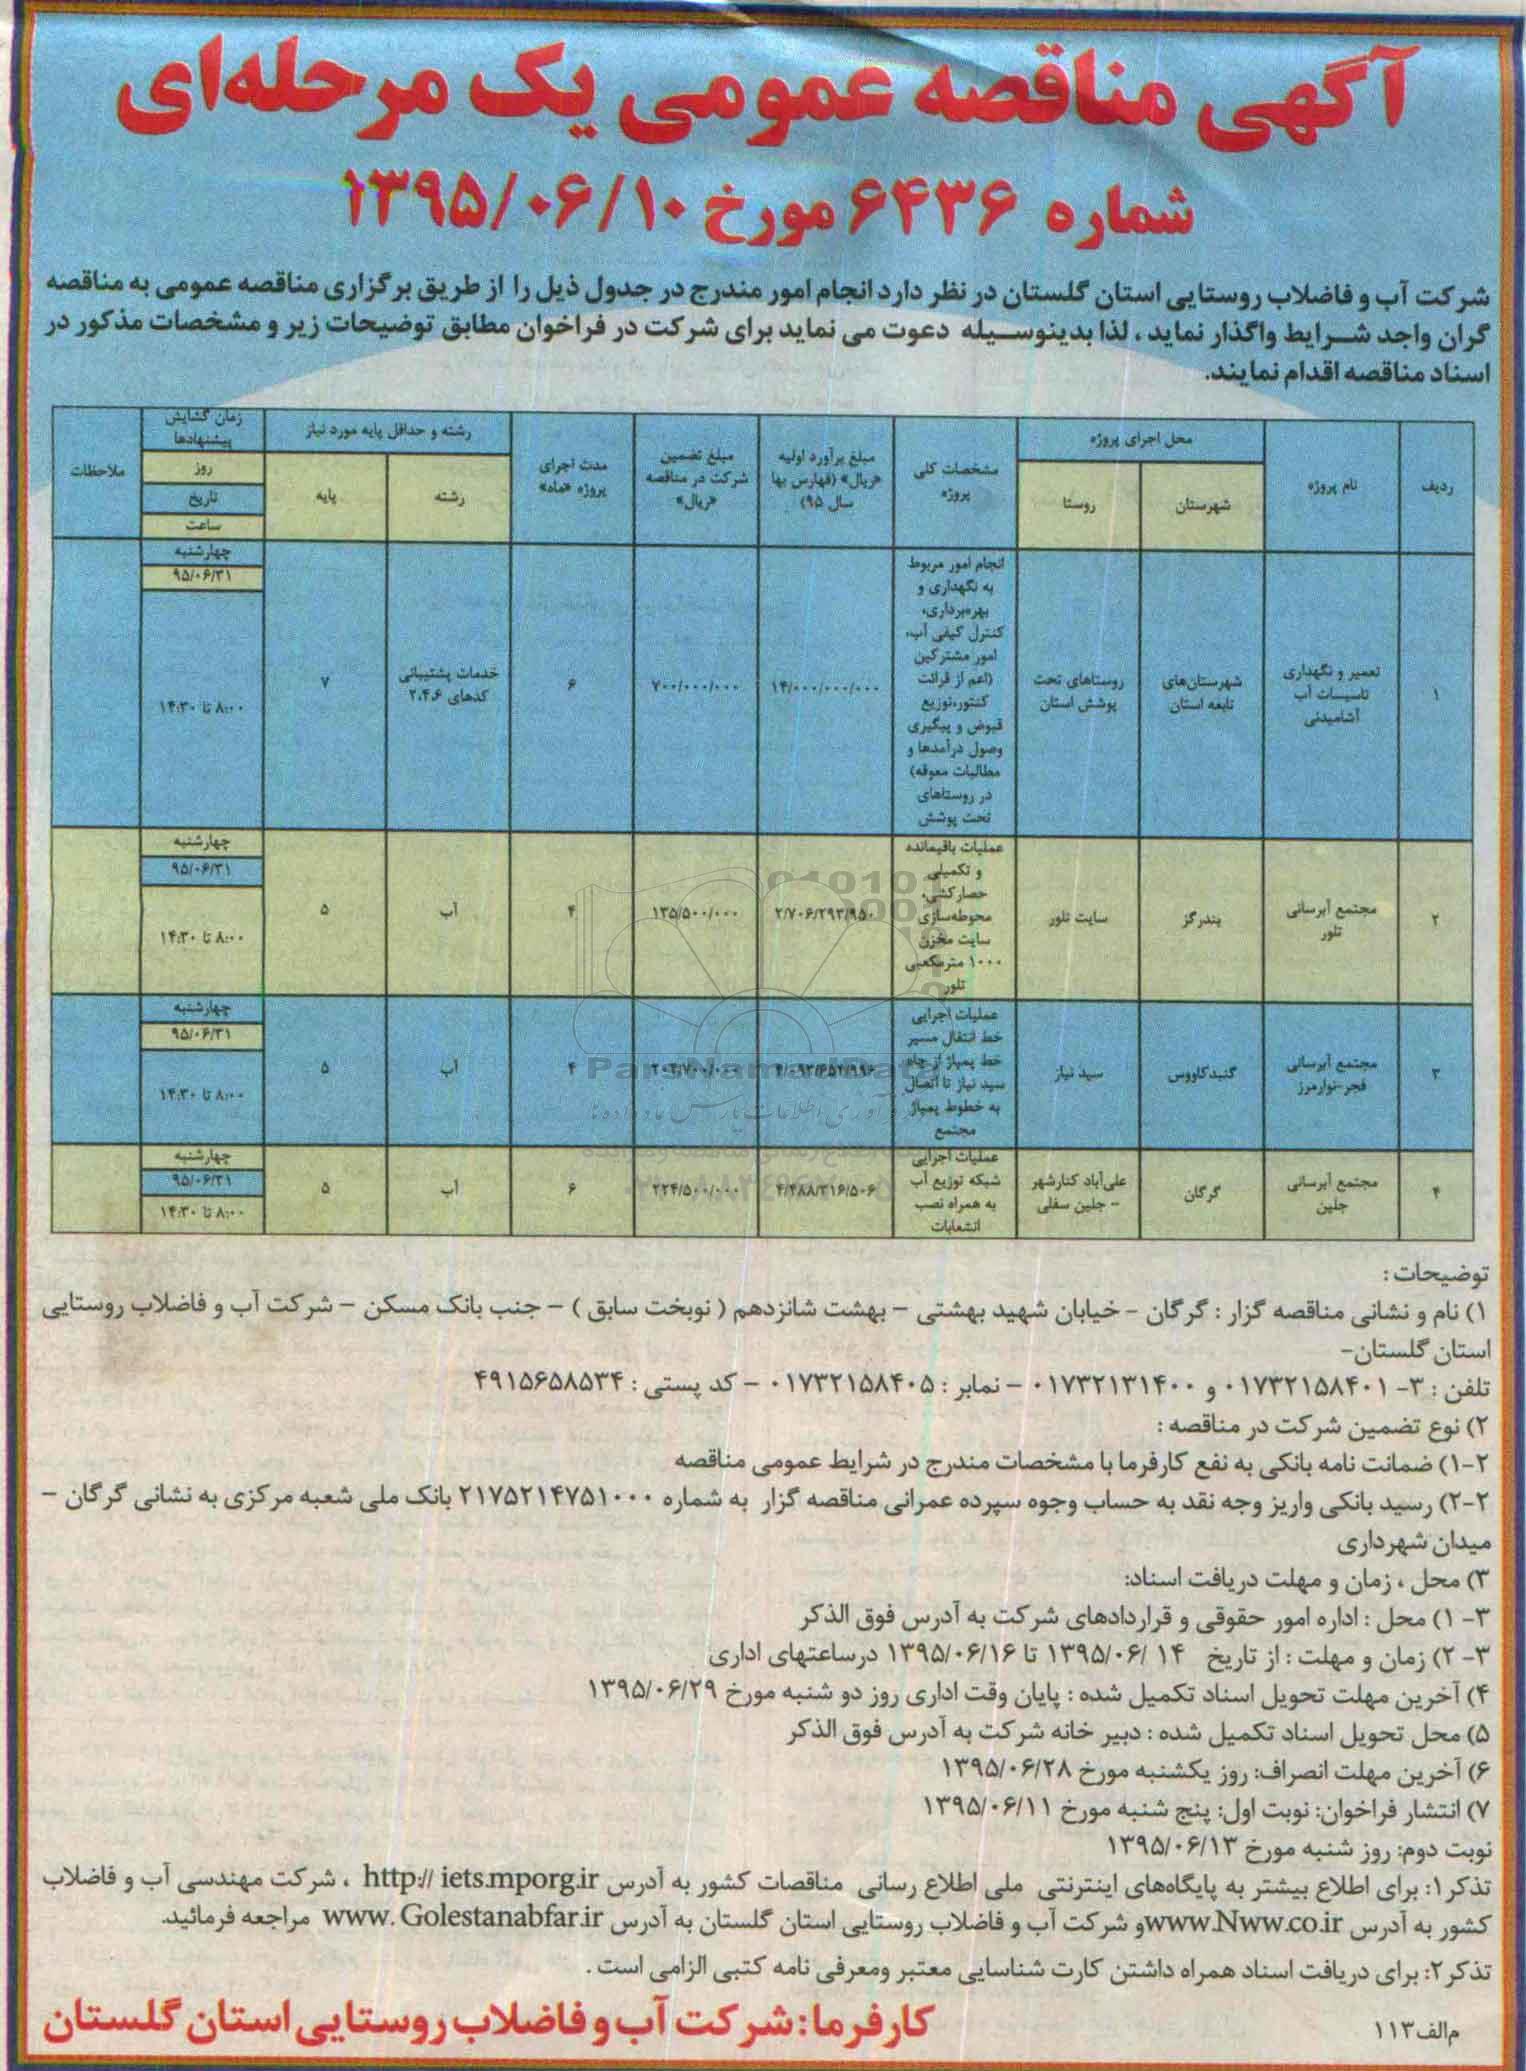 آگهی مناقصه عمومی یک مرحله‌ای
شماره ۶۴۳۶ مورخ ۱۳۹۵/۰۶/۱۰
شرکت آب و فاضلاب روستایی استان گلستان در نظر دارد انجام امور مندرج در جدول ذیل را از طریق برگزاری مناقصه عمومی به مناقصه
گران واجد شرایط واگذار نماید ، لذا بدینوسیله دعوت می نماید برای شرکت در فراخوان مطابق توضیحات زیر و مشخصات مذکور در
اسناد مناقصه اقدام نمایند.
ردیف
نام پروژه
محل اجرای پروژه
شهرستان
روستا
مشخصات کلی
پروژه
مبلغ برآورد اولیه
«ریال» (فهارس بها
سال ۹۵)
مبلغ تضمین
شرکت در مناقصه
«ریال»
مدت اجرای
پروژه «ماه»
رشته و حداقل پایه مورد نیاز
رشته
پایه
زمان گشایش
پیشنهادها
روز
تاریخ
ساعت
ملاحظات
۱
تعمیر و نگهداری
تاسیسات آب
آشامیدنی
شهرستان‌های
تابعه استان
روستاهای تحت
پوشش استان
انجام امور مربوط
به نگهداری و
بهره‌برداری،
کنترل کیفی آب،
امور مشترکین
(اعم از قرائت
کنتور،توزیع
قبوض و پیگیری
وصول درآمدها و
مطالبات معوقه)
در روستاهای
تحت پوشش
۱۴/۰۰۰/۰۰۰/۰۰۰
۷۰۰/۰۰۰/۰۰۰
۶
خدمات پشتیبانی
کدهای ۲،۴،۶
۷
چهارشنبه
۹۵/۰۶/۳۱
۸:۰۰ تا ۱۴:۳۰
۲
مجتمع آبرسانی
تلور
بندرگز
سایت تلور
عملیات باقیمانده
و تکمیلی
حصارکشی،
محوطه‌سازی
سایت مخزن
۱۰۰۰ مترمکعبی
تلور
۲/۷۰۶/۲۹۳/۹۵۰
۱۳۵/۵۰۰/۰۰۰
۴
آب
۵
چهارشنبه
۹۵/۰۶/۳۱
۸:۰۰ تا ۱۴:۳۰
۳
مجتمع آبرسانی
فجر-نوارمرز
گنبدکاووس
سید نیاز
عملیات اجرایی
خط انتقال مسیر
خط پمپاژ از چاه
سید نیاز تا اتصال
به خطوط پمپاژ
مجتمع
۴/۰۹۳/۶۵۲/۹۹۶
۴
آب
۵
چهارشنبه
۹۵/۰۶/۳۱
۸:۰۰ تا ۱۴:۳۰
۴
مجتمع آبرسانی
جلین
گرگان
علی‌آباد کنارشهر
- جلین سفلی
عملیات اجرایی
شبکه توزیع آب
به همراه نصب
انشعابات
۴/۴۸۸/۳۱۶/۵۰۶
۲۲۴/۵۰۰/۰۰۰
۶
آب
۵
چهارشنبه
۹۵/۰۶/۳۱
۸:۰۰ تا ۱۴:۳۰
ParsNamadData
توضیحات :
۱) نام و نشانی مناقصه گزار : گرگان - خیابان شهید بهشتی – بهشت شانزدهم ( نوبخت سابق ) – جنب بانک مسکن – شرکت آب و فاضلاب روستایی
استان گلستان-
تلفن : ۳- ۰۱۷۳۲۱۵۸۴۰۱ و ۰۱۷۳۲۱۳۱۴۰۰ – نمابر : ۰۱۷۳۲۱۵۸۴۰۵ – کد پستی : ۴۹۱۵۶۵۸۵۳۴
۲) نوع تضمین شرکت در مناقصه :
۲-۱) ضمانت نامه بانکی به نفع کارفرما با مشخصات مندرج در شرایط عمومی مناقصه
۲-۲) رسید بانکی واریز وجه نقد به حساب وجوه سپرده عمرانی مناقصه گزار به شماره ۲۱۷۵۲۱۴۷۵۱۰۰۰ بانک ملی شعبه مرکزی به نشانی گرگان –
میدان شهرداری
۳) محل ، زمان و مهلت دریافت اسناد:
۳- ۱) محل : اداره امور حقوقی و قراردادهای شرکت به آدرس فوق الذکر
۳- ۲) زمان و مهلت : از تاریخ ۱۴ /۱۳۹۵/۰۶ تا ۱۳۹۵/۰۶/۱۶ درساعتهای اداری
۴) آخرین مهلت تحویل اسناد تکمیل شده : پایان وقت اداری روز دو شنبه مورخ ۱۳۹۵/۰۶/۲۹
۵) محل تحویل اسناد تکمیل شده : دبیر خانه شرکت به آدرس فوق الذکر
۶) آخرین مهلت انصراف: روز یکشنبه مورخ ۱۳۹۵/۰۶/۲۸
۷) انتشار فراخوان: نوبت اول: پنج شنبه مورخ ۱۳۹۵/۰۶/۱۱
نوبت دوم: روز شنبه مورخ ۱۳۹۵/۰۶/۱۳
تذکر۱: برای اطلاع بیشتر به پایگاه‌های اینترنتی ملی اطلاع رسانی مناقصات کشور به آدرس http:// iets.mporg.ir ، شرکت مهندسی آب و فاضلاب
کشور به آدرس www.Nww.co.ir و شرکت آب و فاضلاب روستایی استان گلستان به آدرس www. Golestanabfar.ir مراجعه فرمائید.
تذکر۲: برای دریافت اسناد همراه داشتن کارت شناسایی معتبر ومعرفی نامه کتبی الزامی است .
م‌الف۱۱۳
کارفرما: شرکت آب و فاضلاب روستایی استان گلستان